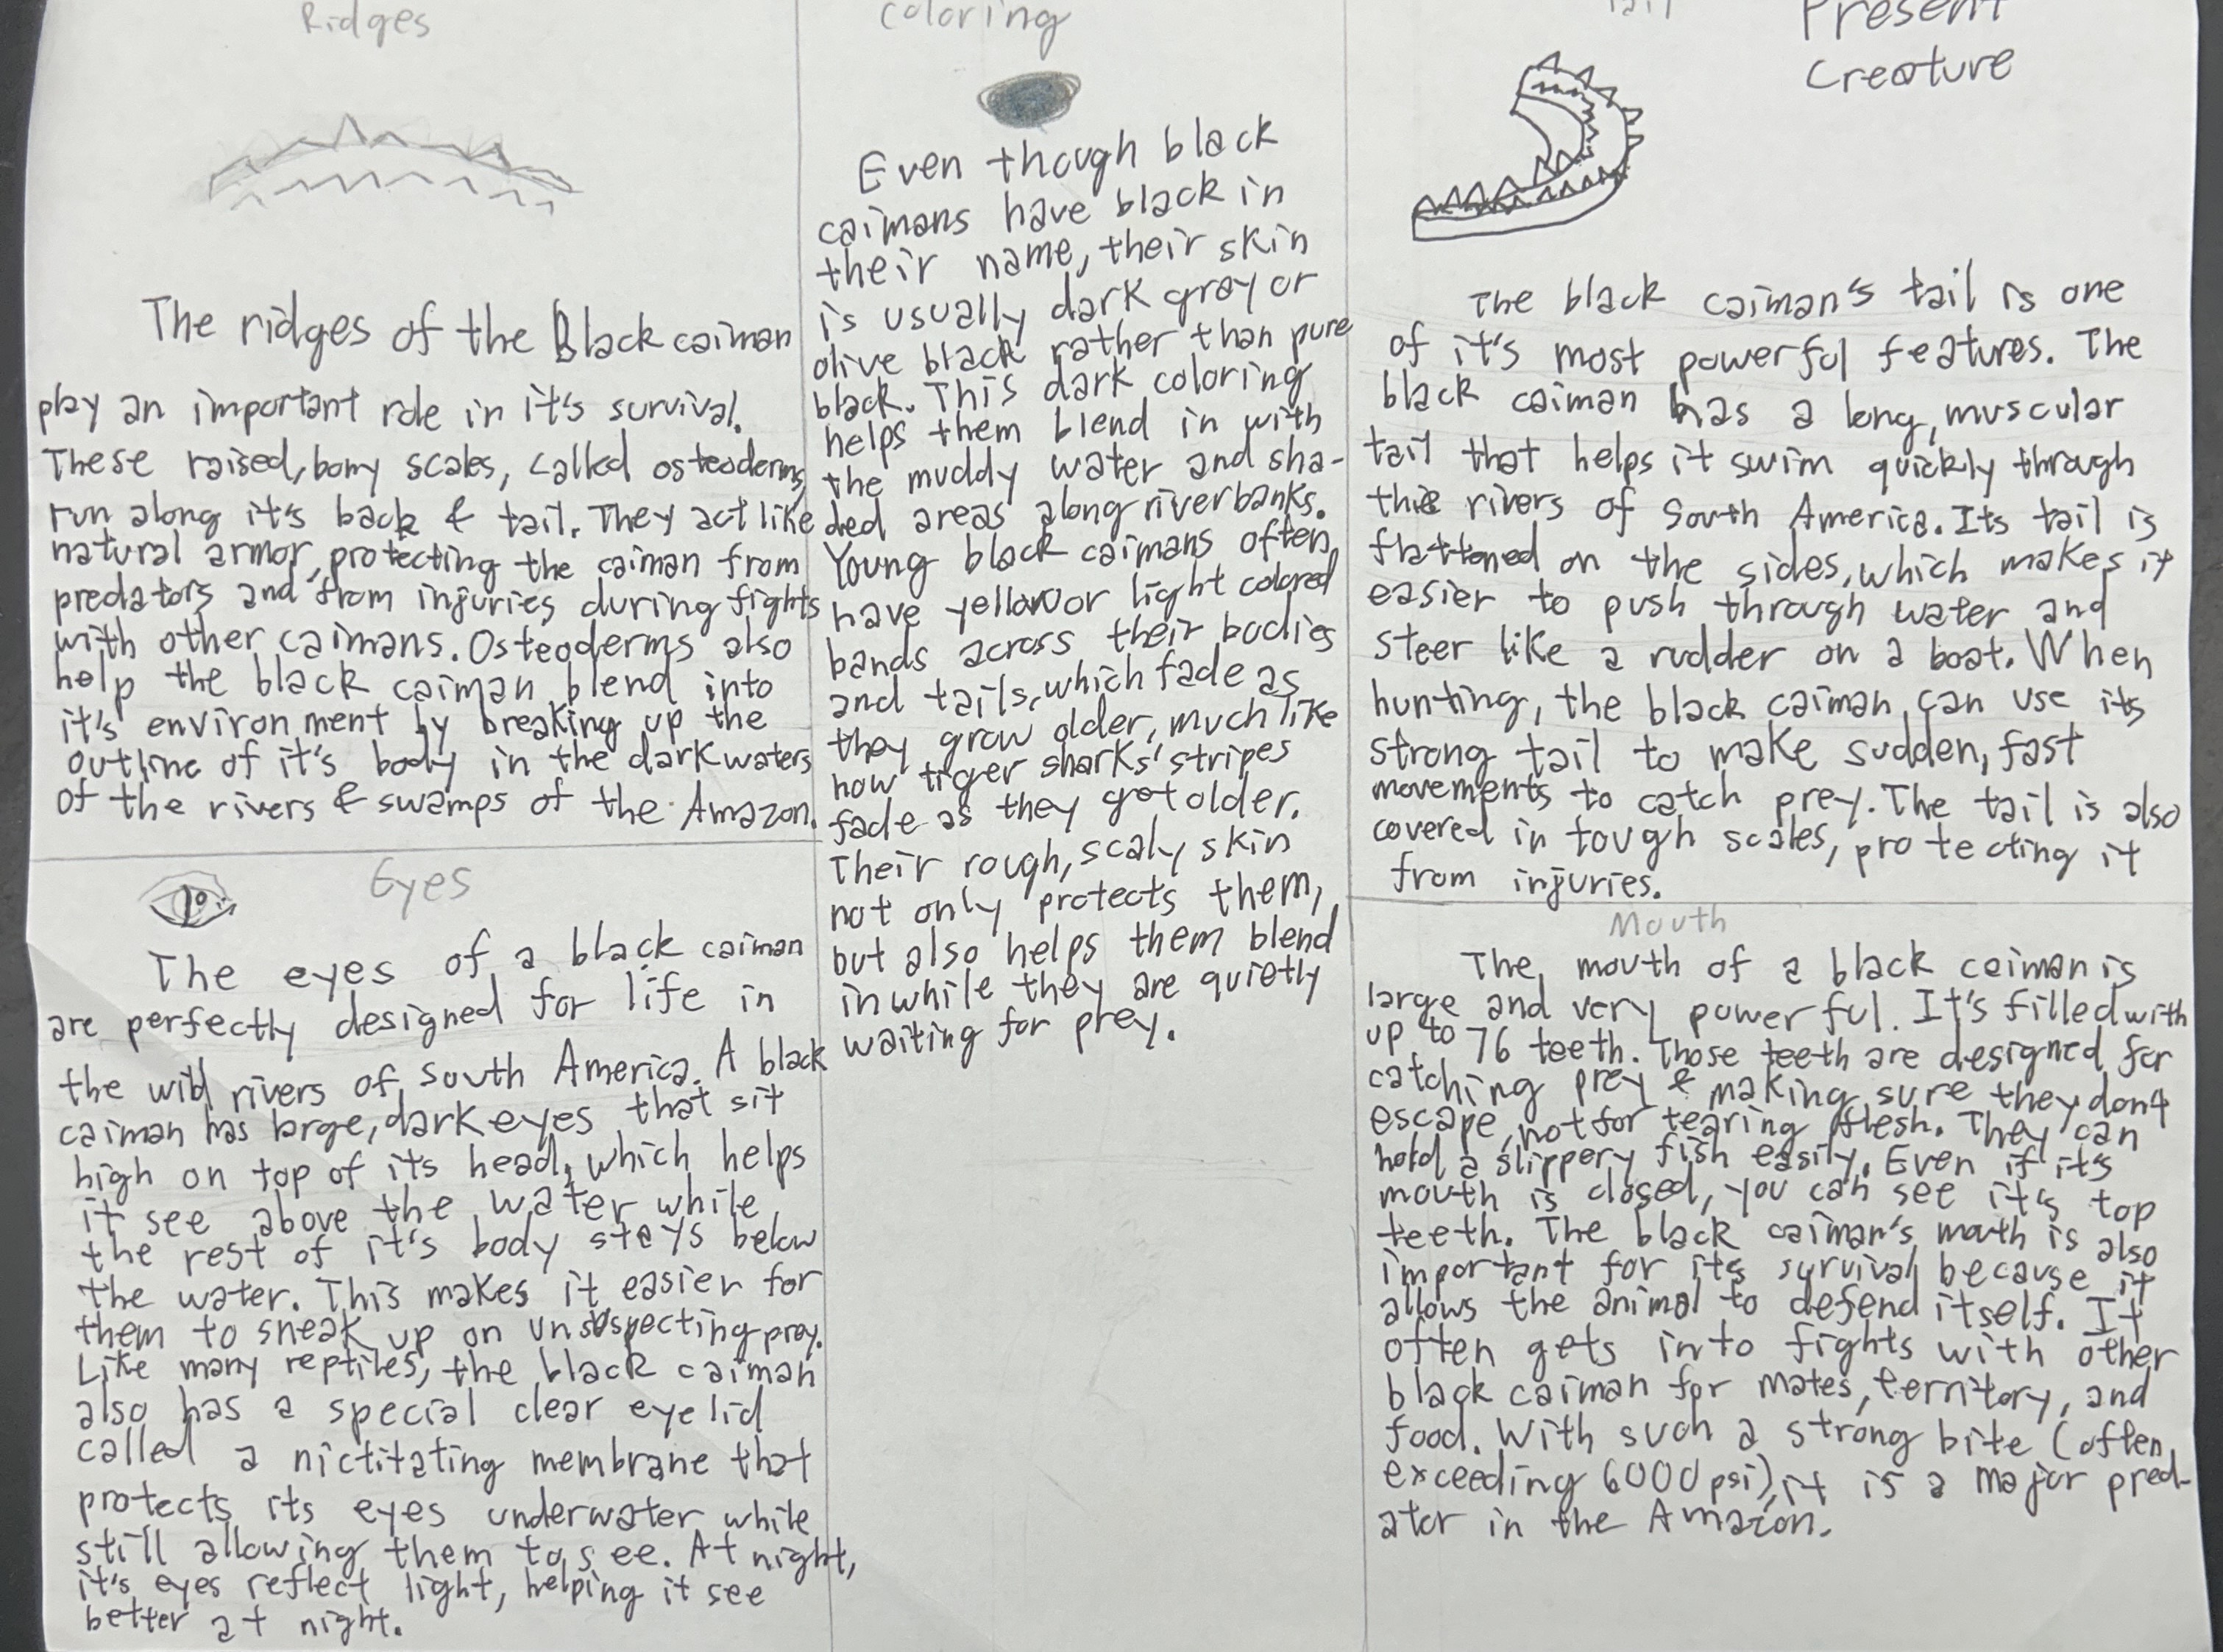 Ridges
The ridges of the Black caiman
play an important role in it's survival.
These raised, bony scales, called osteoderms,
run along it's back & tail. They act like
natural armor, protecting the caiman from
predators and from injuries during fights
with other caimans. Osteoderms also
help the black caiman blend into
it's environment by breaking up the
outline of it's body in the dark waters
of the rivers & swamps of the Amazon.
Eyes
The eyes of a black caiman
are perfectly designed for life in
the wild rivers of South America. A black
caiman has large, dark eyes that sit
high on top of its head, which helps
it see above the water while
the rest of it's body stays below
the water. This makes it easier for
them to sneak up on unsuspecting prey.
Like many reptiles, the black caiman
also has a special clear eyelid
called a nictitating membrane that
protects its eyes underwater while
still allowing them to see. At night,
it's eyes reflect light, helping it see
better at night.
Coloring
Even though black
caimans have black in
their name, their skin
is usually dark gray or
olive black rather than pure
black. This dark coloring
helps them blend in with
the muddy water and sha-
ded areas along riverbanks.
Young black caimans often
have yellow or light colored
bands across their bodies
and tails, which fade as
they grow older, much like
how tiger sharks' stripes
fade as they get older.
Their rough, scaly skin
not only protects them,
but also helps them blend
in while they are quietly
waiting for prey.
Tail
Present
Creature
The black caiman's tail is one
of it's most powerful features. The
black caiman has a long, muscular
tail that helps it swim quickly through
the rivers of South America. Its tail is
flattened on the sides, which makes it
easier to push through water and
steer like a rudder on a boat. When
hunting, the black caiman can use its
strong tail to make sudden, fast
movements to catch prey. The tail is also
covered in tough scales, protecting it
from injuries.
Mouth
The mouth of a black caiman is
large and very powerful. It's filled with
up to 76 teeth. Those teeth are designed for
catching prey & making sure they don't
escape, not for tearing flesh. They can
hold a slippery fish easily. Even if it's
mouth is closed, you can see it's top
teeth. The black caiman's mouth is also
important for its survival because it
allows the animal to defend itself. It
often gets into fights with other
black caiman for mates, territory, and
food. With such a strong bite (often
exceeding 6000 psi), it is a major pred-
ator in the Amazon.